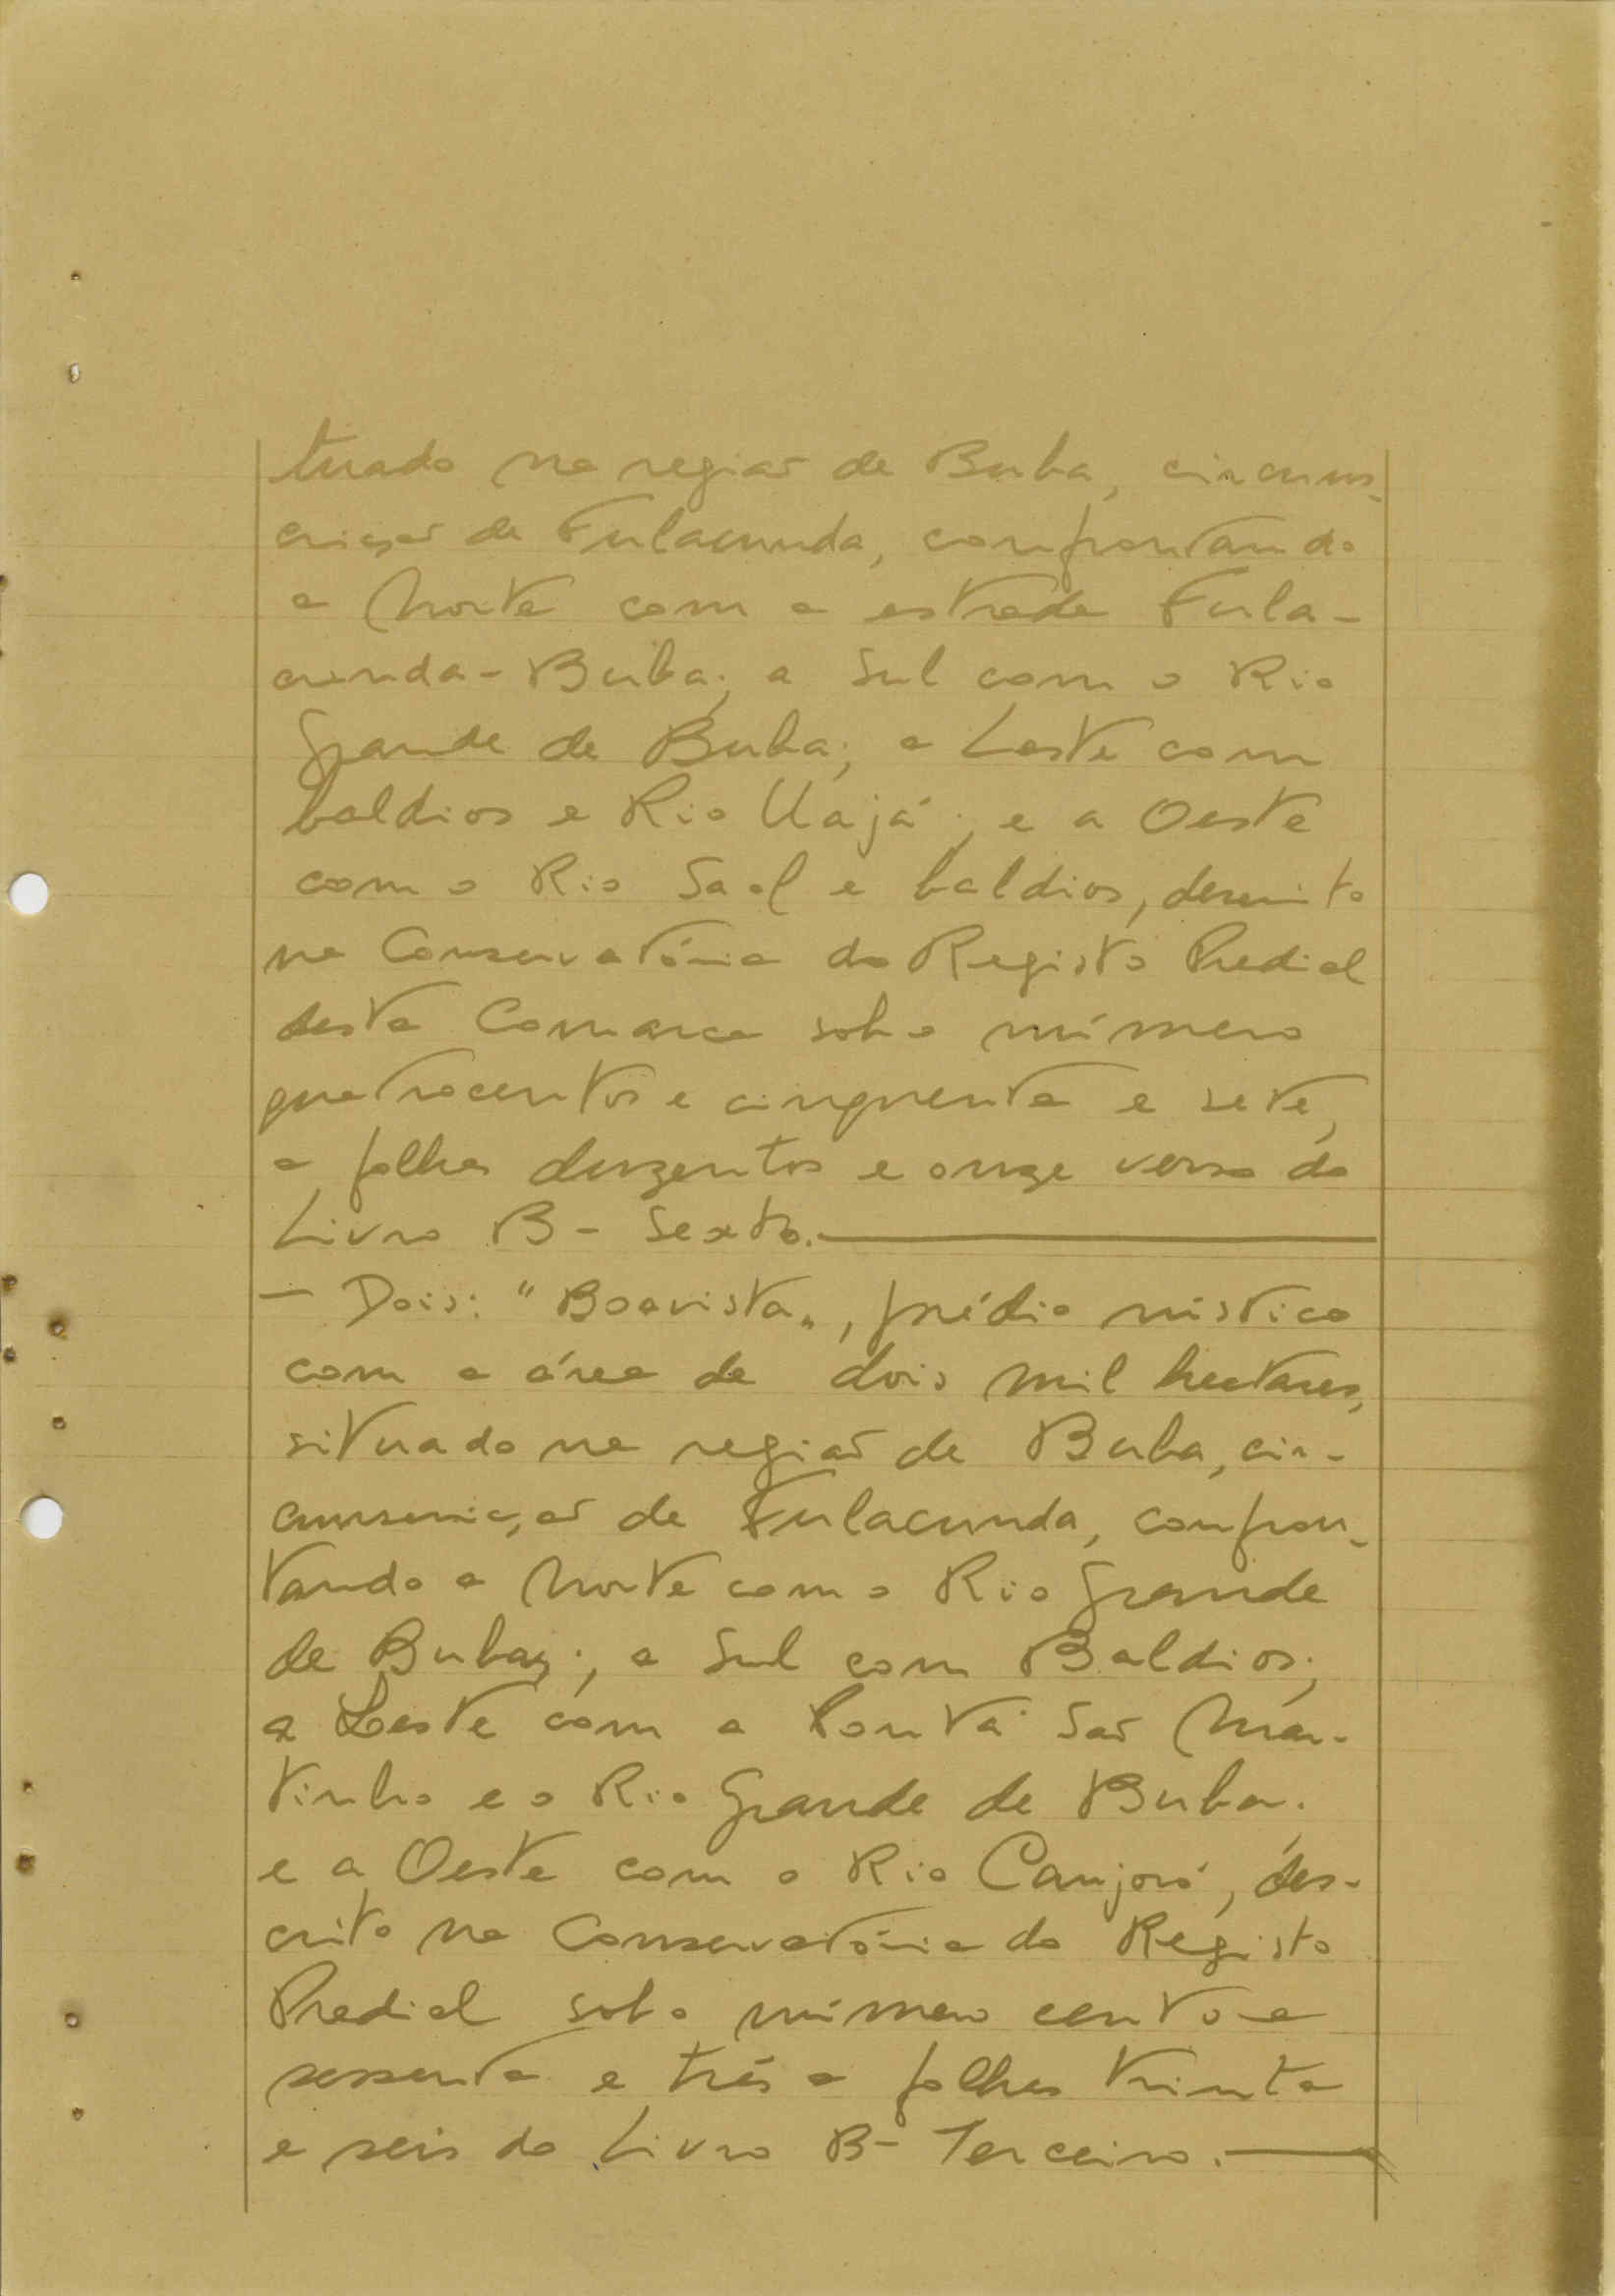 tuado na região de Buba, circuns-
crição de Fulacunda, confrontando
a Norte com a estrada Fula-
cunda-Buba; a Sul com o Rio
Grande de Buba; a Leste com
baldios e Rio Uajá; e a Oeste
com o Rio Saol e baldios, descrito
na Conservatória do Registo Predial
desta Comarca sob o número
quatrocentos e cinquenta e sete,
a folhas duzentos e onze verso do
Livro B - Sexto.
- Dois: "Boavista", prédio rústico
com a área de dois mil hectares,
situado na região de Buba, cir-
cunscrição de Fulacunda, confron-
tando a Norte com o Rio Grande
de Buba; a Sul com Baldios;
a Leste com a Ponta São Mar-
tinho e o Rio Grande de Buba.
e a Oeste com o Rio Canjoró, des-
crito na Conservatória do Registo
Predial sob o número cento e
sessenta e três a folhas trinta
e seis do Livro B - Terceiro.